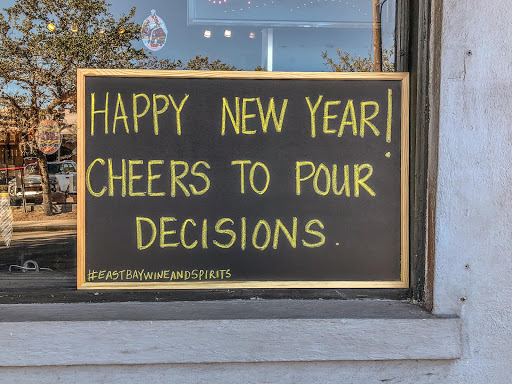 HAPPY NEW YEAR!
CHEERS TO POUR
DECISIONS.
#EASTBAYWINEANDSPIRITS